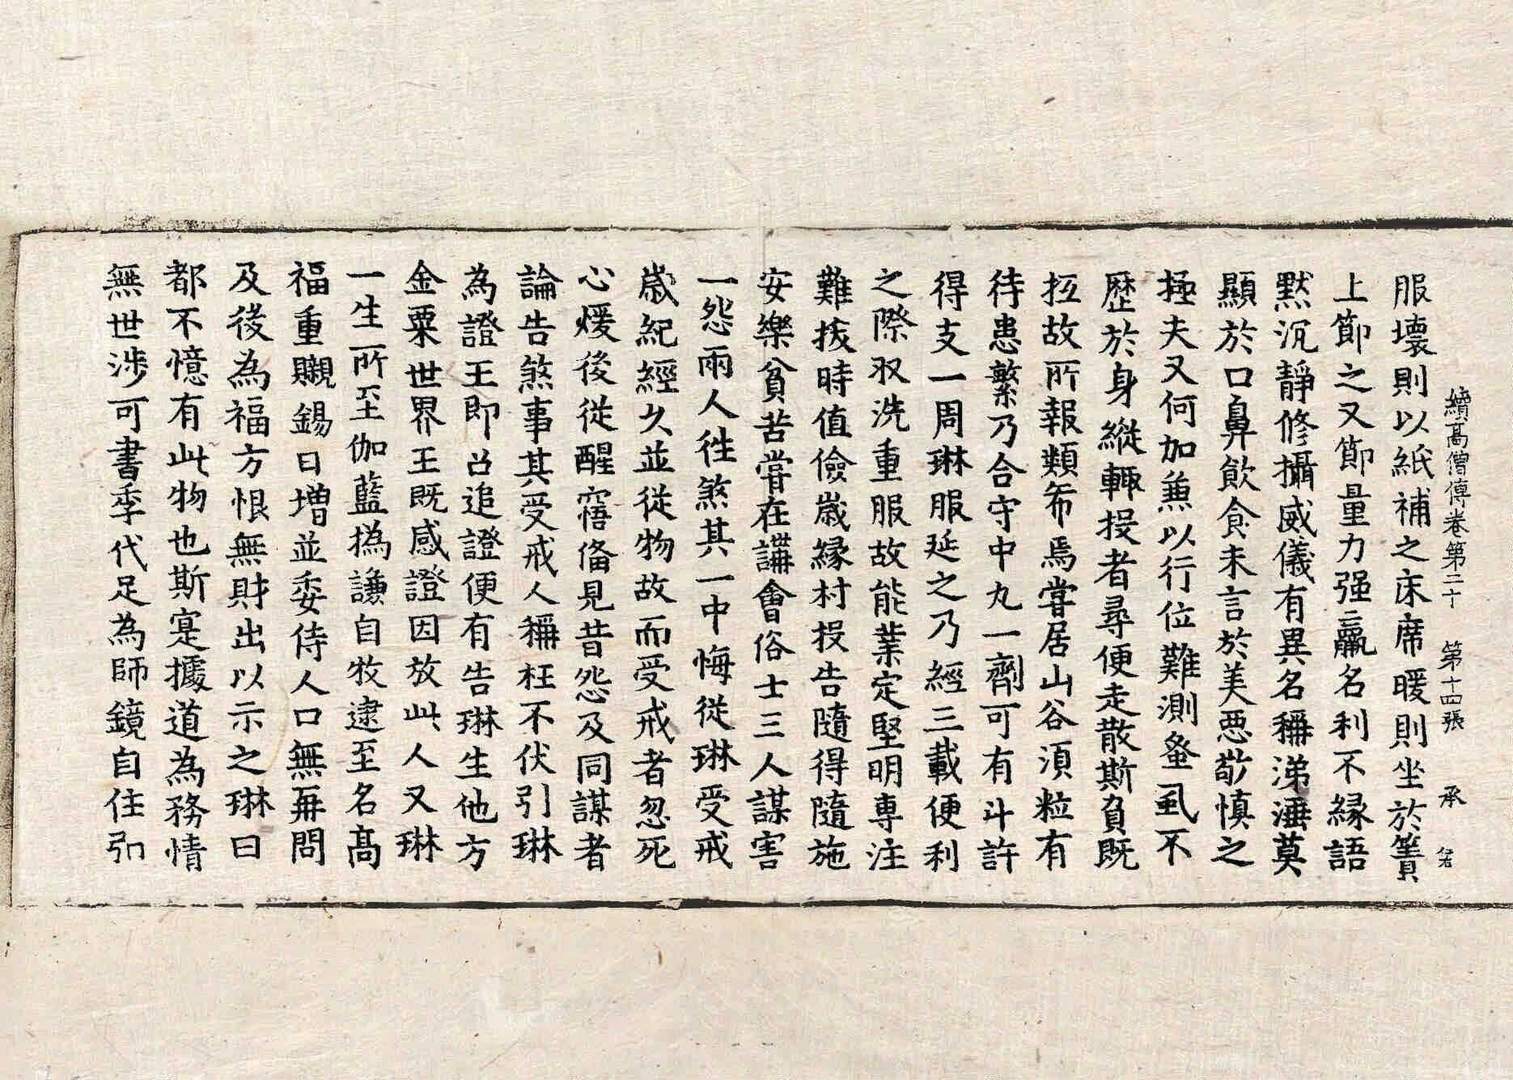 續高僧傳卷第二十 第十四張 承
服壞則以紙補之床席暖則坐於簀
上節之又節量力强羸名利不緣語
默沉靜修攝威儀有異名稱涕唾莫
顯於口鼻飲食未言於美惡敬慎之
極夫又何加兼以行位難測蚤虱不
歷於身縱輙投者尋便走散斯負既
㧓故所報類希焉嘗居山谷須粒有
待患繁乃合守中丸一劑可有斗許
得支一周琳服延之乃經三載便利
之際収洗重服故能業定堅明專注
難拔時值儉歲緣村投告隨得隨施
安樂貧苦嘗在講會俗士三人謀害
一怨兩人往煞其一中悔從琳受戒
歲紀經久並從物故而受戒者忽死
心煖後從醒寤俻見昔怨及同謀者
論告煞事其受戒人稱枉不伏引琳
為證王即召追證便有告琳生他方
金粟世界王既感證因放此人又琳
一生所至伽藍撝謙自牧逮至名髙
福重嚫錫日增並委侍人口無再問
及後為福方恨無財出以示之琳曰
都不憶有此物也斯寔據道為務情
無世涉可書季代足為師鏡自住弘